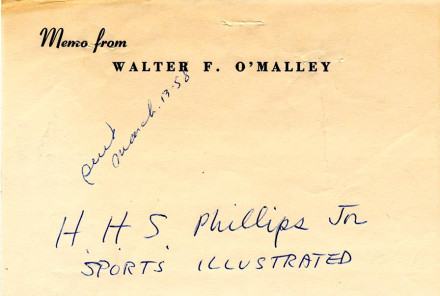 Memo from
WALTER F. O'MALLEY
sent
March. 13-58
H. H. S. Phillips Jr
SPORTS ILLUSTRATED